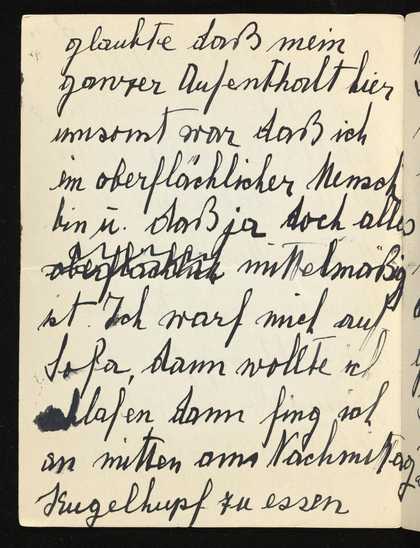 glaubte daß mein
ganzer Aufenthalt hier
umsomt war daß ich
ein oberflächlicher Mensch
bin u. daß ja doch alles
oberflächlich mittelmäßig
ist. Ich warf mich auf
Sofa, dann wollte ich
schlafen dann fing ich
an mitten am Nachmittag
Kugelhupf zu essen